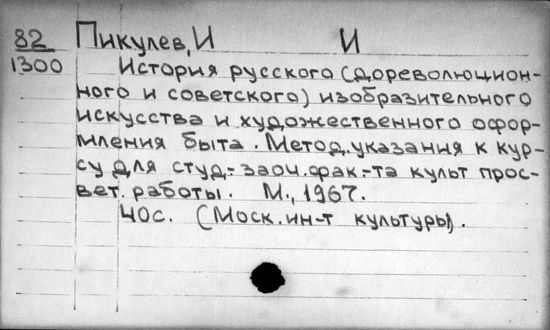 82 Пикулев, И И
1300 История русского (дореволюцион-
ного и советского) изобразительного
искусства и художественного офор-
мления быта. Метод. указания к кур-
су для студ.-заоч. фак.-та культ прос-
вет. работы. М., 1967.
40с. (Моск. ин-т культуры).